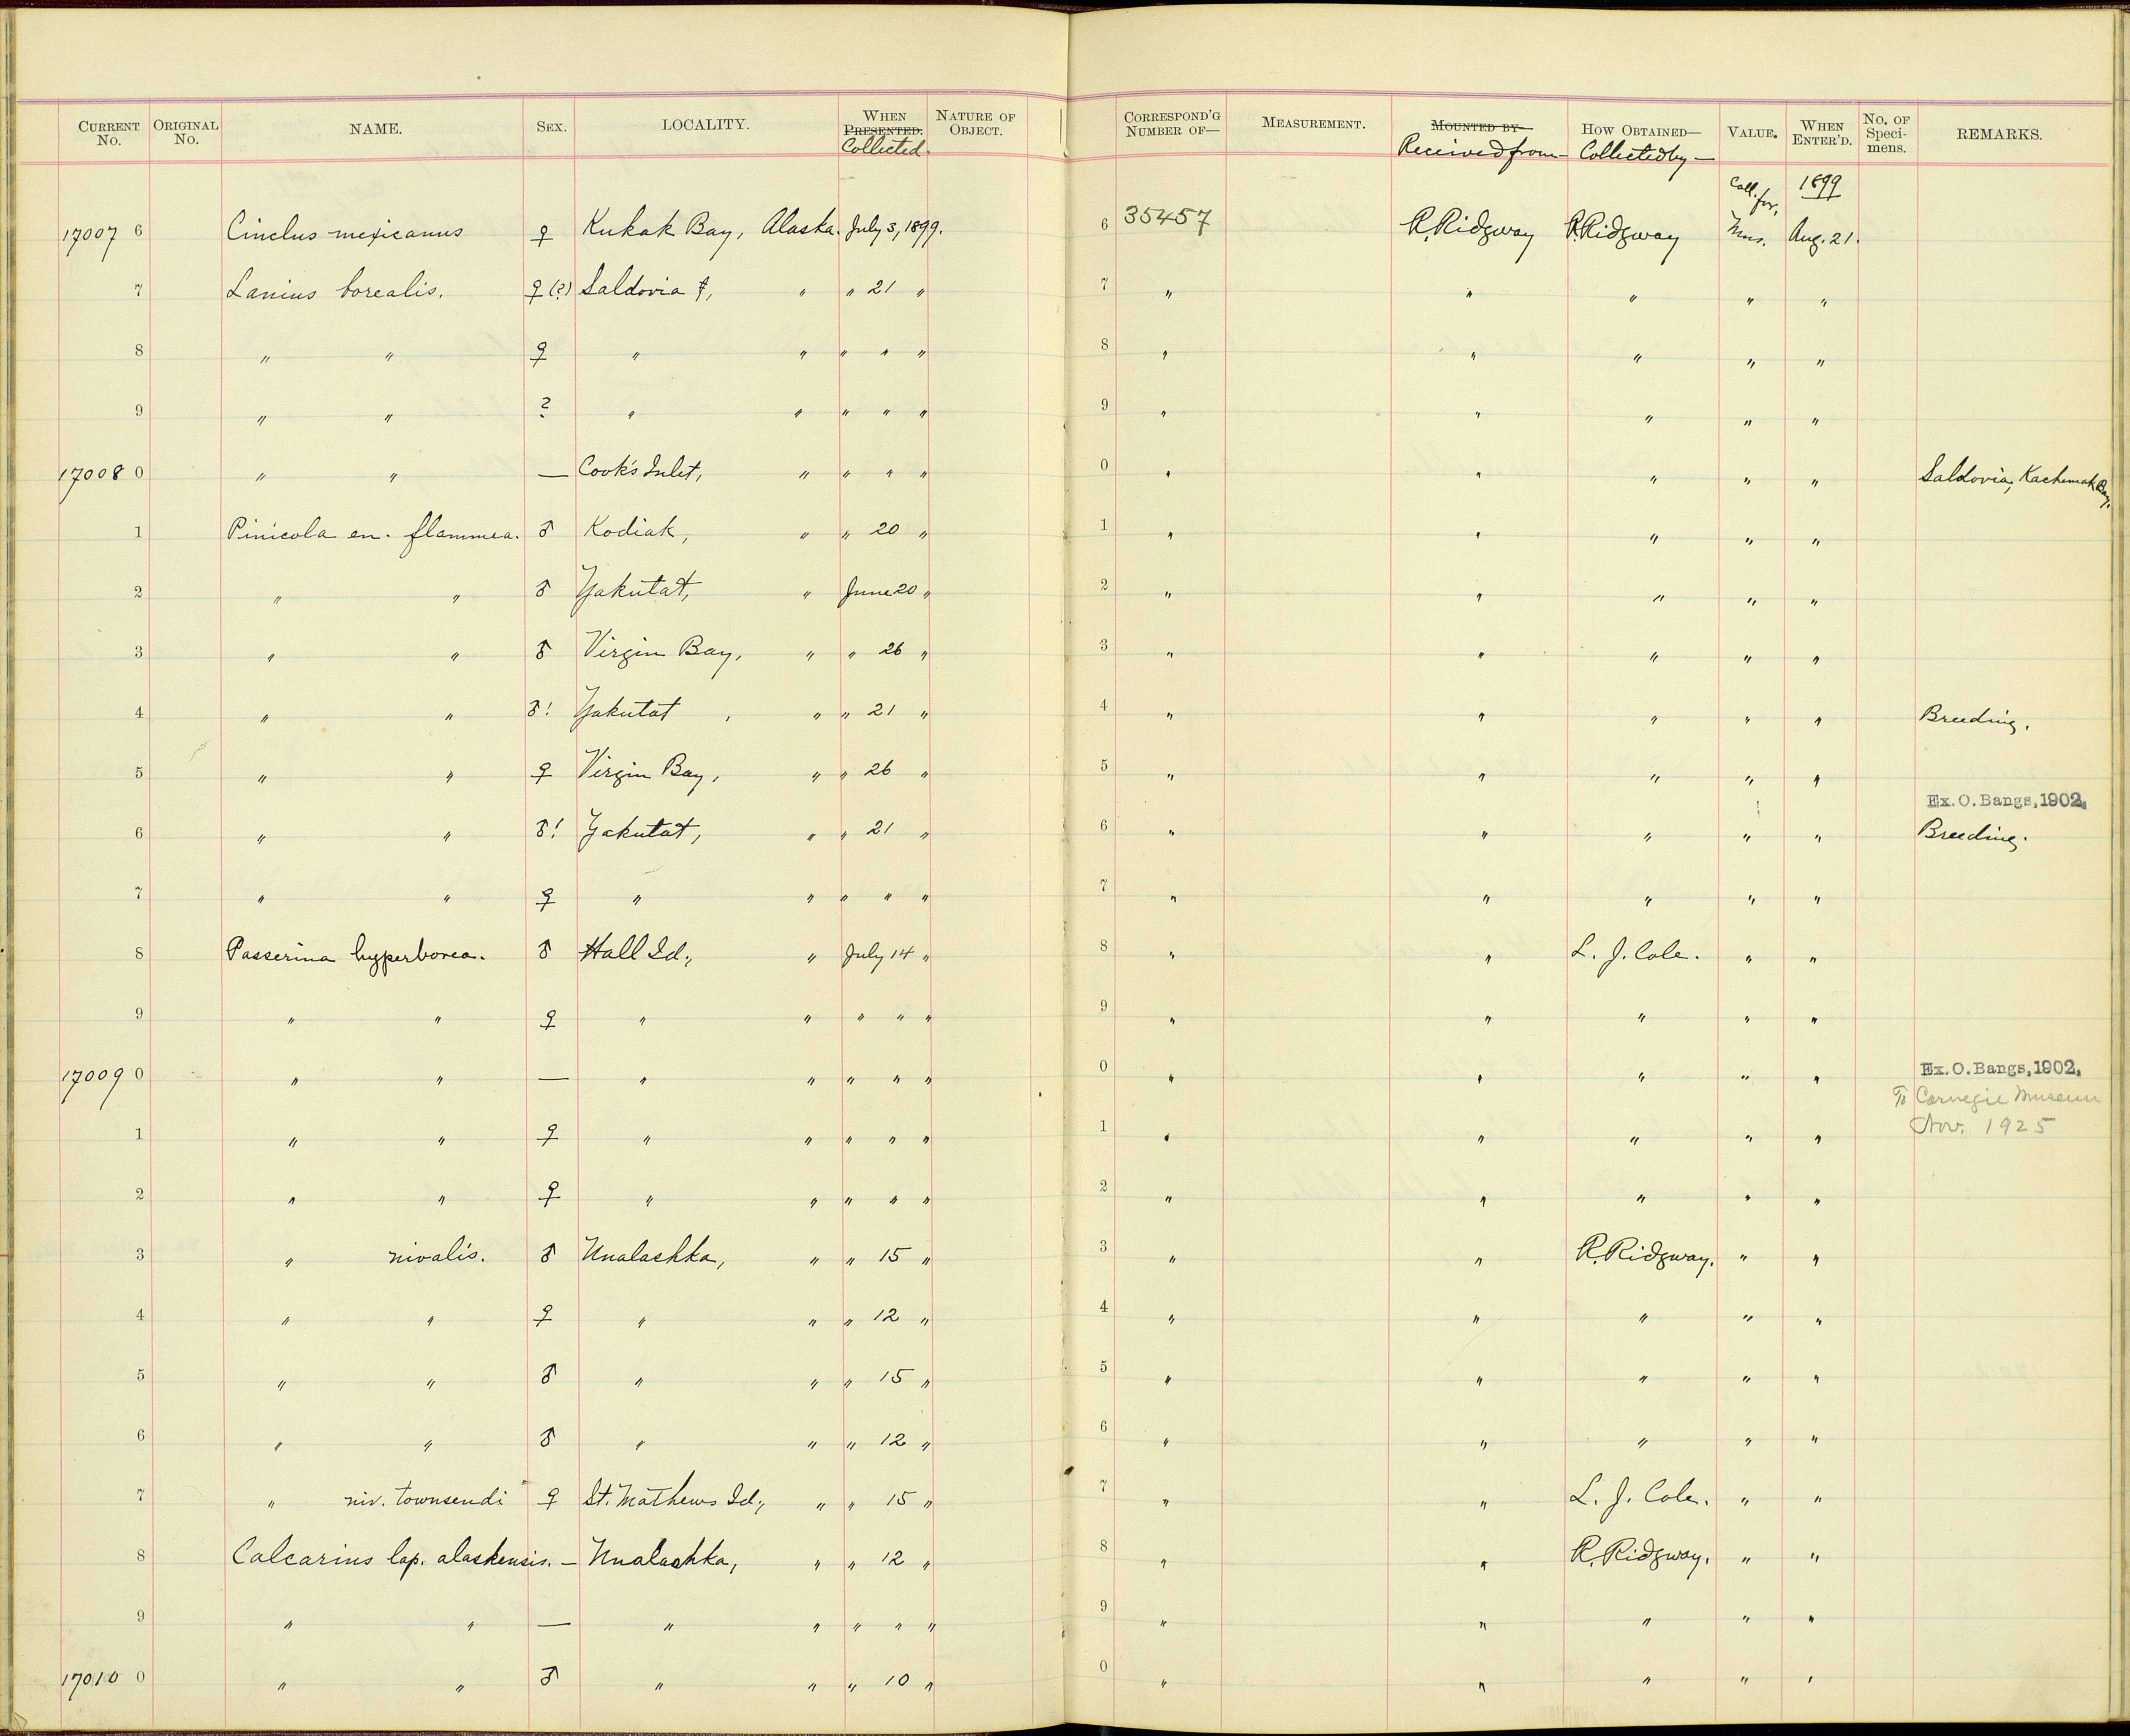 CURRENT No. ORIGINAL No. NAME. SEX. LOCALITY. WHEN PRESENTED. Collected. NATURE OF OBJECT. CORRESPOND'G NUMBER OF— MEASUREMENT. MOUNTED BY— Received from— HOW OBTAINED— Collected by— VALUE. WHEN ENTER'D. No. OF Speci- mens. REMARKS.
Coll. for, 1899
17007 6 Cinclus mexicanus ♀ Kukak Bay, Alaska. July 3, 1899. 6 35457 R. Ridgway R. Ridgway Mus. Aug. 21.
7 Lanius borealis. ♀(?) Saldovia, " " 21 " 7 " " " " "
8 " " ♀ " " " " " 8 " " " " "
9 " " ? " " " " " 9 " " " " "
17008 0 " " — Cook's Inlet, " " " " 0 " " " " " Saldovia, Kachemak Bay.
1 Pinicola en. flammea. ♂ Kodiak, " " 20 " 1 " " " " "
2 " " ♂ Yakutat, " June 20 " 2 " " " " "
3 " " ♂ Virgin Bay, " " 26 " 3 " " " " "
4 " " ♂! Yakutat, " " 21 " 4 " " " " " Breeding.
5 " " ♀ Virgin Bay, " " 26 " 5 " " " " "
Ex. O. Bangs, 1902.
6 " " ♂! Yakutat, " " 21 " 6 " " " " " Breeding.
7 " " ♀ " " " " " 7 " " " " "
8 Passerina hyperborea. ♂ Hall Id., " July 14 " 8 " " L. J. Cole. " "
9 " " ♀ " " " " " 9 " " " " "
17009 0 " " — " " " " " 0 " " " " " Ex. O. Bangs, 1902.
To Carnegie Museum
1 " " ♀ " " " " " 1 " " " " " Nov. 1925
2 " " ♀ " " " " " 2 " " " " "
3 " nivalis. ♂ Unalashka, " " 15 " 3 " " R. Ridgway. " "
4 " " ♀ " " " 12 " 4 " " " " "
5 " " ♂ " " " 15 " 5 " " " " "
6 " " ♂ " " " 12 " 6 " " " " "
7 " niv. townsendi ♀ St. Mathews Id., " " 15 " 7 " " L. J. Cole. " "
8 Calcarius lap. alaskensis. — Unalashka, " " 12 " 8 " " R. Ridgway. " "
9 " " — " " " " " 9 " " " " "
17010 0 " " ♂ " " " 10 " 0 " " " " "